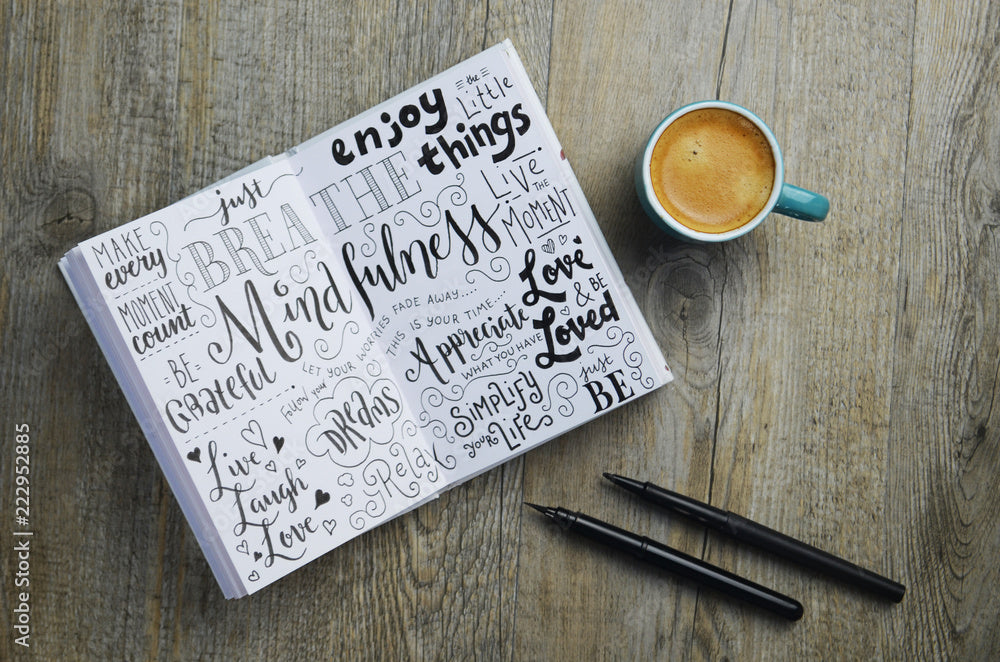 MAKE
every
MOMENT
count
just
BREATHE
enjoy
the
Little
things
Mindfulness
LIVE
THE
MOMENT
= BE =
Grateful
LET YOUR WORRIES FADE AWAY....
THIS IS YOUR TIME...
Follow your
DREAMS
Appreciate
WHAT YOU HAVE
Love
& BE
Loved
Live
Laugh
Love
Relax
SIMPLIFY
YOUR LIFE
just
BE
Adobe Stock | #222952885